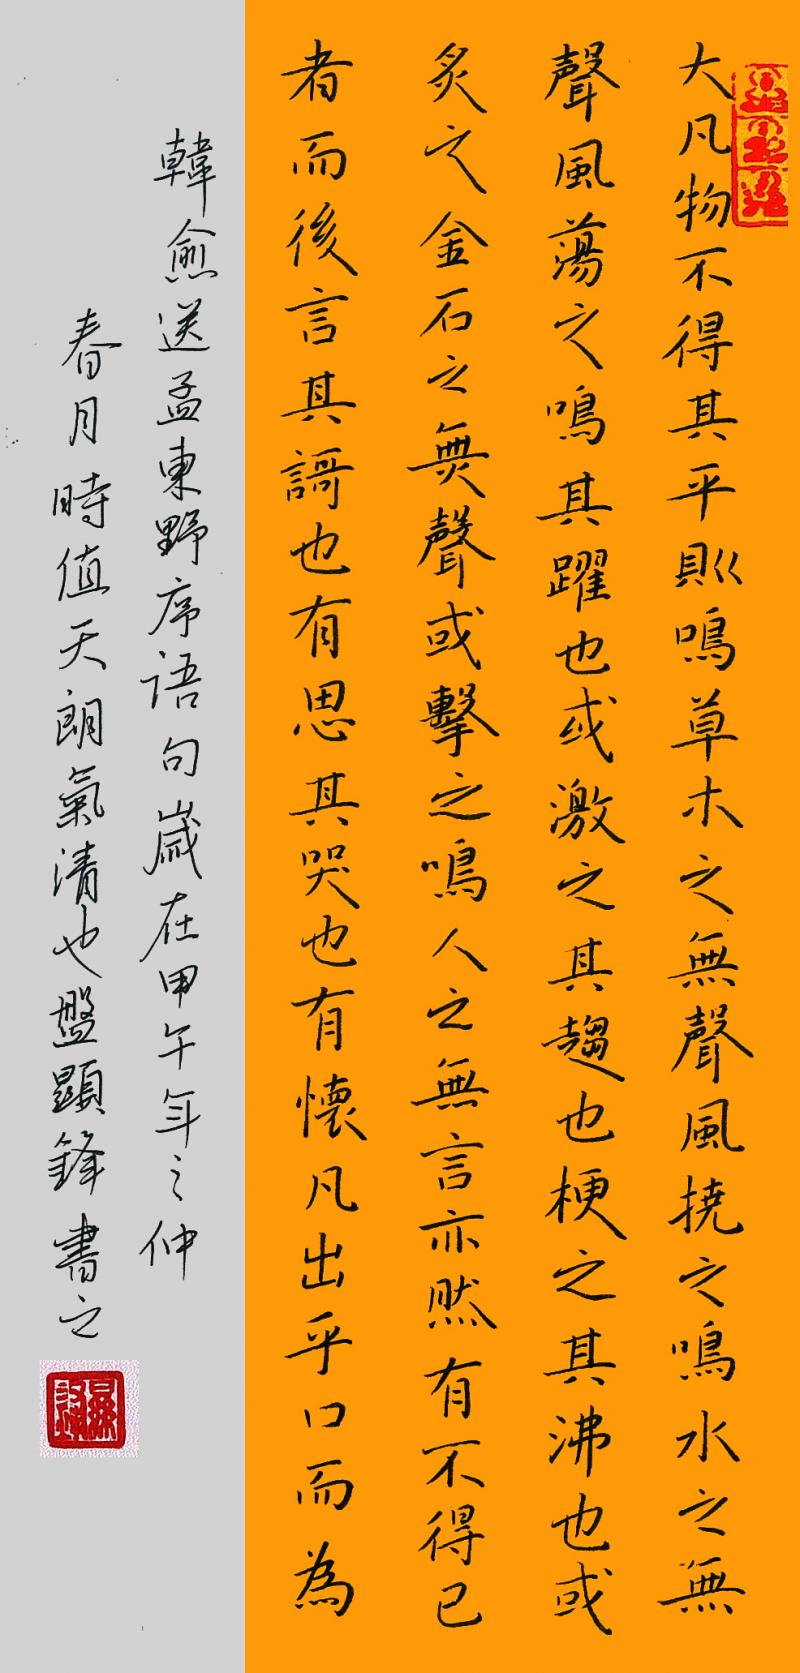 大凡物不得其平則鳴草木之無聲風撓之鳴水之無
聲風蕩之鳴其躍也或激之其趨也梗之其沸也或
炙之金石之無聲或擊之鳴人之無言亦然有不得已
者而後言其謌也有思其哭也有懷凡出乎口而為
韓愈送孟東野序語句嵗在甲午年之仲
春月時值天朗氣清也盤顯鋒書之